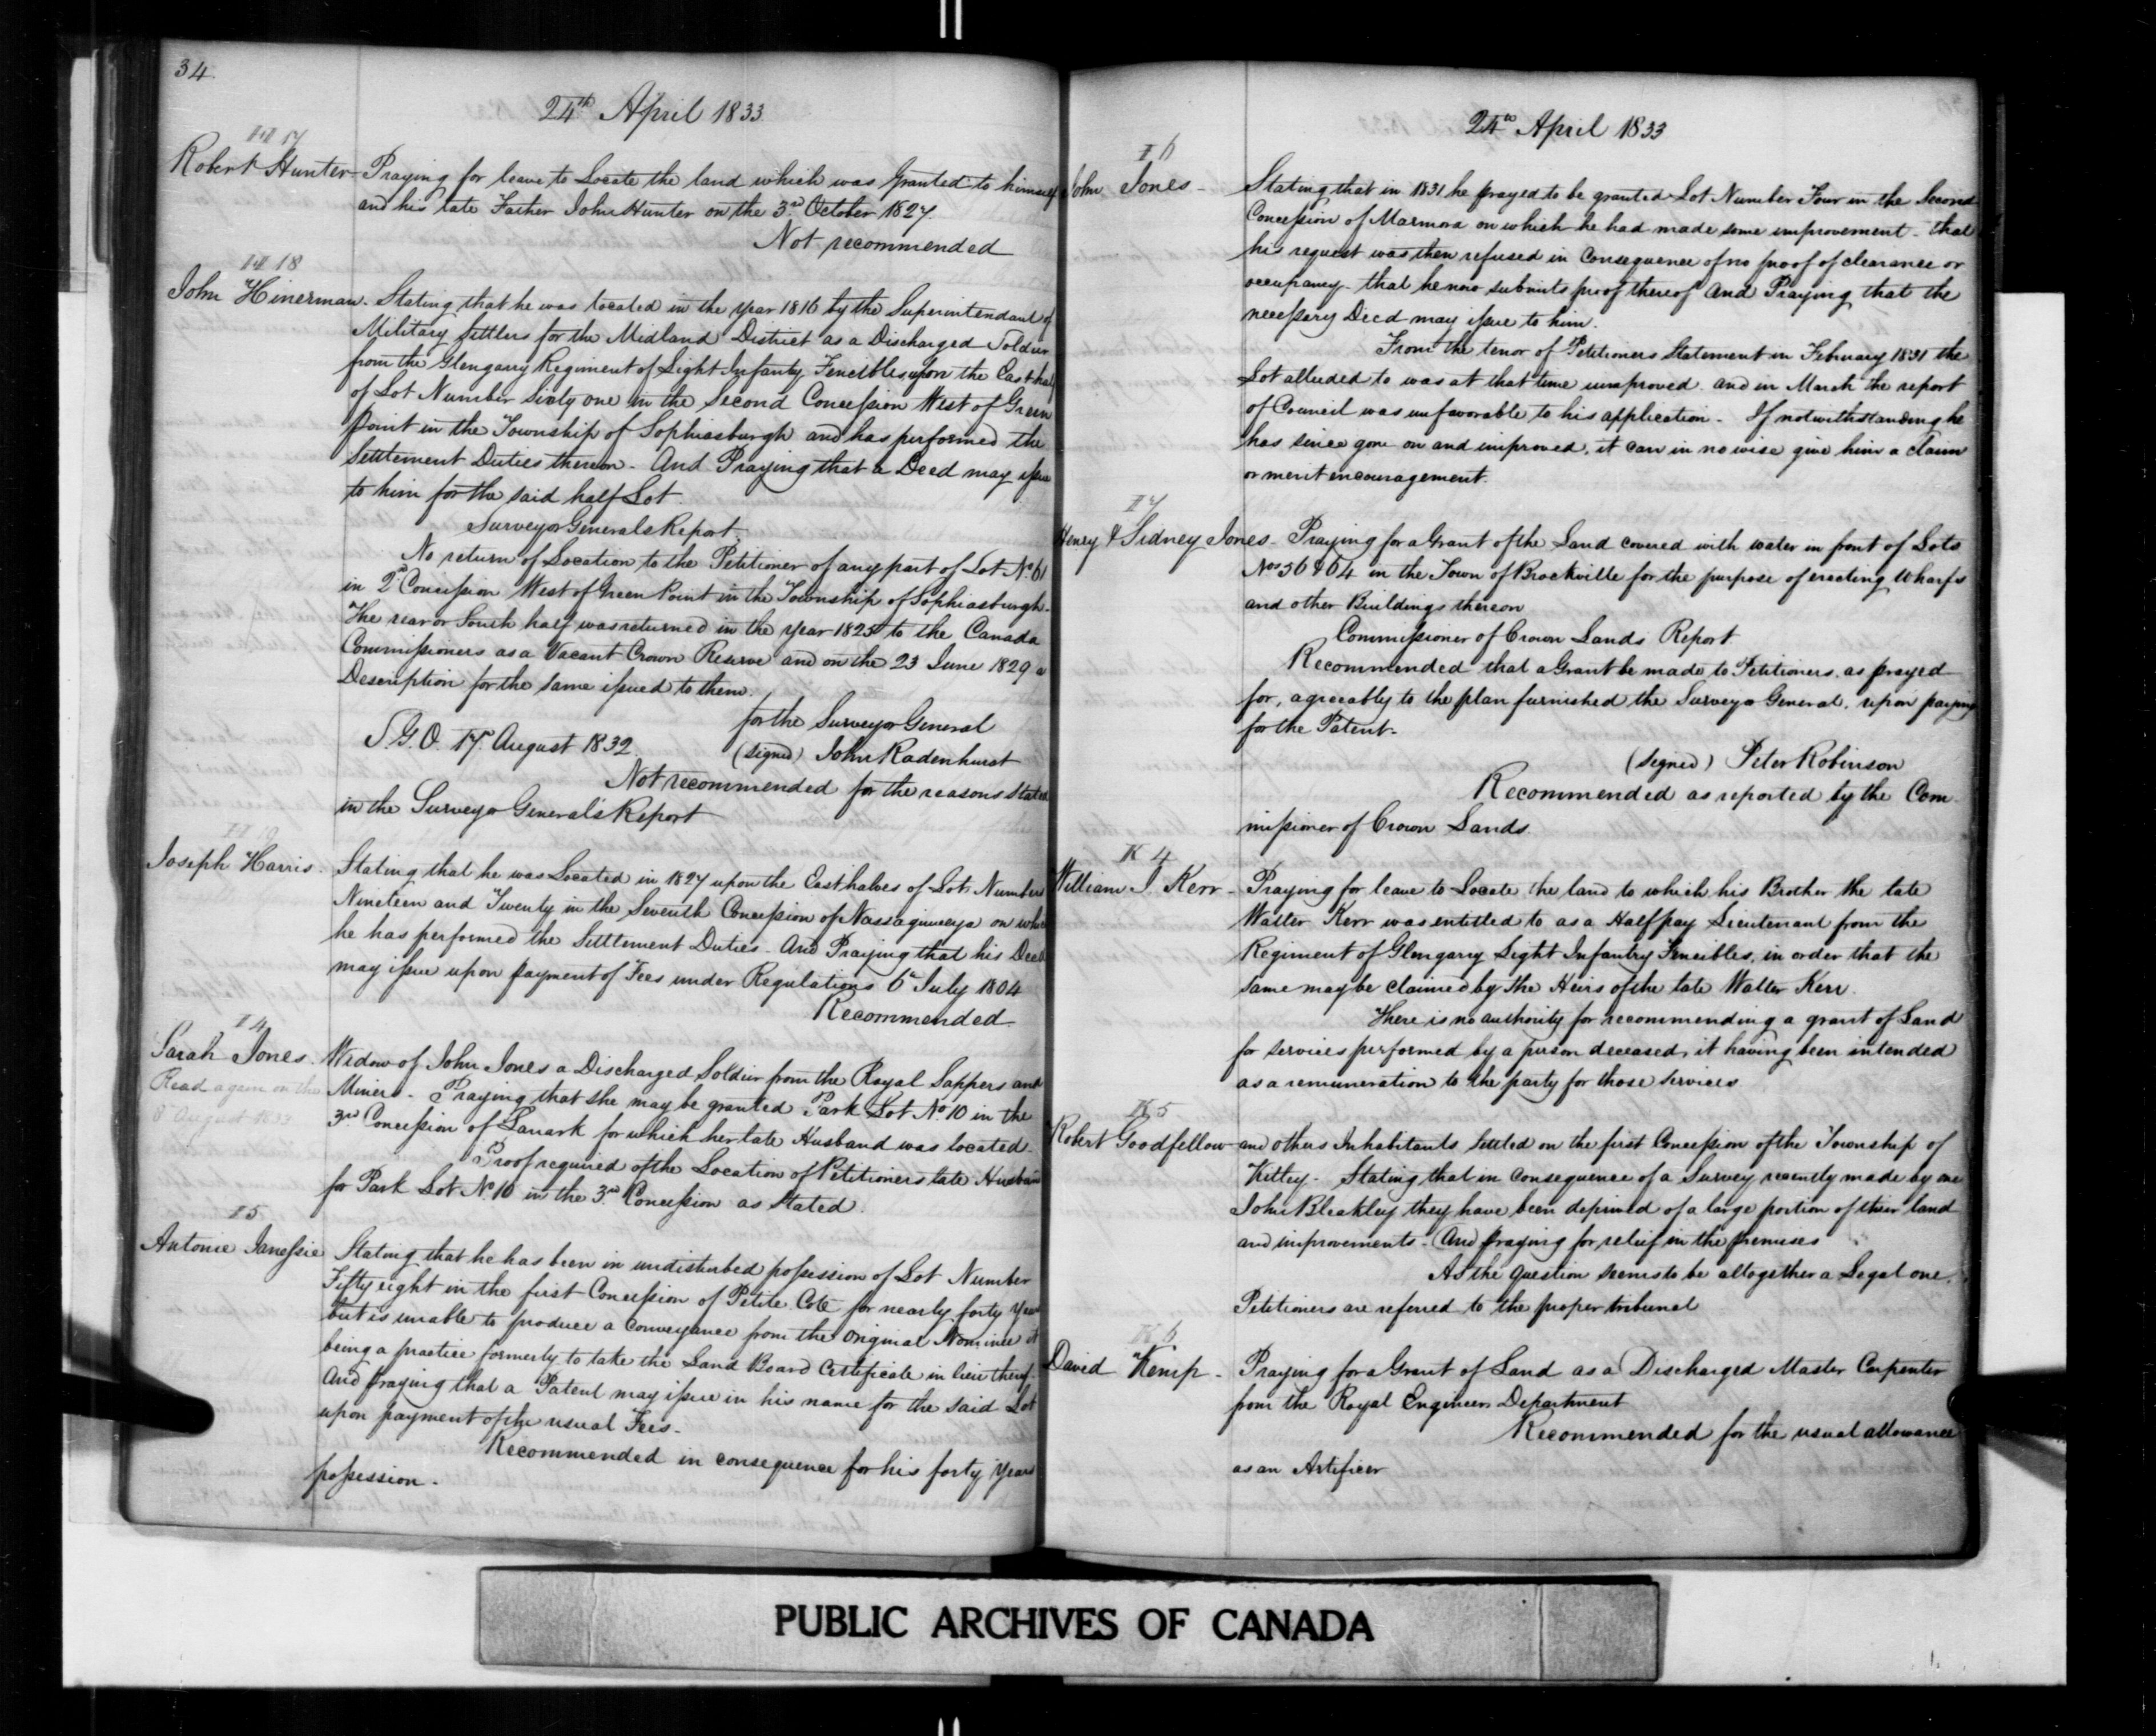 34.
24th April 1833
H 17
Robert Hunter - Praying for leave to Locate the land which was Granted to himself
and his late Father John Hunter on the 3rd October 1827.
Not recommended
H 18
John Hinerman - Stating that he was located in the year 1816 by the Superintendant of
Military Settlers for the Midland District as a Discharged Soldier
from the Glengarry Regiment of Light Infanty Fencibles, upon the East half
of Lot Number Sixty one in the Second Concession West of Green
Point in the Township of Sophiasburgh and has performed the
Settlement Duties thereon - And Praying that a Deed may issue
to him for the said half Lot
Surveyor Generals Report.
No return of Location to the Petitioner of any part of Lot No 61
in 2d Concession West of Green Point in the Township of Sophiasburgh -
The rear or South half was returned in the year 1825 to the Canada
Commissioners as a Vacant Crown Reserve and on the 23 June 1829 a
Description for the same issued to them.
for the Surveyor General
S. G. O. 17. August 1832 (signed) John Radenhurst
Not recommended for the reasons stated
in the Surveyor General's Report
H 19
Joseph Harris. Stating that he was Located in 1827 upon the East halves of Lot Number
Nineteen and Twenty in the Seventh Concession of Nassagiweya on which
he has performed the Settlement Duties - And Praying that his Deed
may issue upon payment of Fees under Regulations 6th July 1804
Recommended
I 4
Sarah Jones. Widow of John Jones a Discharged Soldier from the Royal Sappers and
Read again on the
Miners - Praying that she may be granted Park Lot No 10 in the
August 1833
3rd Concession of Lanark for which her late Husband was located -
Proof required of the Location of Petitioners late Husband
for Park Lot No 10 in the 3rd Concession as Stated.
I 5
Antonie Janessie Stating that he has been in undisturbed possession of Lot Number
Fifty eight in the first Concession of Petite Cote for nearly forty Years
but is unable to produce a Conveyance from the Original Nominee it
being a practice formerly to take the Land Board Certificate in lieu thereof -
And praying that a Patent may issue in his name for the said Lot
upon payment of the usual Fees -
Recommended in consequence for his forty Years
possession -
24th April 1833
I 6
John Jones - Stating that in 1831 he prayed to be granted Lot Number Four in the Second
Concession of Marmora on which he had made some improvement - that
his request was then refused in Consequence of no proof of clearance or
occupancy - that he now submits proof thereof And Praying that the
necessary Deed may issue to him.
From the tenor of Petitioners Statement in February 1831 the
Lot alluded to was at that time unimproved and in March the report
of Council was unfavorable to his application - If notwithstanding he
has since gone on and improved, it can in no wise give him a claim
or merit encouragement.
I 7
Henry & Sidney Jones - Praying for a Grant of the Land covered with water in front of Lots
Nos 36 & 64 in the Town of Brockville for the purpose of erecting Wharfs
and other Buildings thereon
Commissioner of Crown Lands Report
Recommended that a Grant be made to Petitioners, as prayed
for, agreeably to the plan furnished the Surveyor General, upon paying
for the Patent -
(signed) Peter Robinson
Recommended as reported by the Com-
missioner of Crown Lands.
K 4
William J. Kerr - Praying for leave to Locate the land to which his Brother the late
Walter Kerr was entitled to as a Half pay Lieutenant from the
Regiment of Glengarry Light Infantry Fencibles, in order that the
same may be claimed by the Heirs of the late Walter Kerr.
There is no authority for recommending a grant of Land
for services performed by a person deceased, it having been intended
as a remuneration to the party for those services
K 5
Robert Goodfellow and others Inhabitants settled on the first Concession of the Township of
Kitley - Stating that in consequence of a Survey recently made by one
John Bleakley they have been deprived of a large portion of their land
and improvements - And praying for relief in the premises
As the question seems to be altogether a Legal one,
Petitioners are referred to the proper tribunal
K 6
David Kemp - Praying for a Grant of Land as a Discharged Master Carpenter
from the Royal Engineers Department
Recommended for the usual allowance
as an Artificer
PUBLIC ARCHIVES OF CANADA